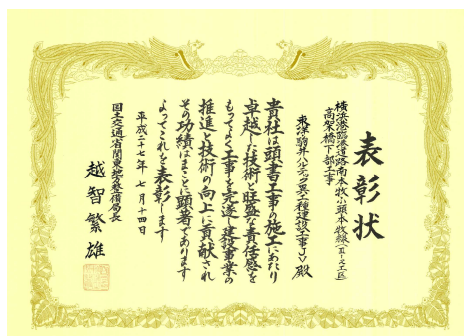 表彰状
横浜港臨港道路南本牧ふ頭本牧線（Ⅱ-2工区）
高架橋下部工事
東洋・駒井ハルテック異工種建設工事JV 殿
貴社は頭書工事の施工にあたり
卓越した技術と旺盛な責任感を
もってよく工事を完遂し建設事業の
推進と技術の向上に貢献され
その功績はまことに顕著であります
よってこれを表彰します
平成二十七年 七月 十四日
国土交通省関東地方整備局長
越智繁雄